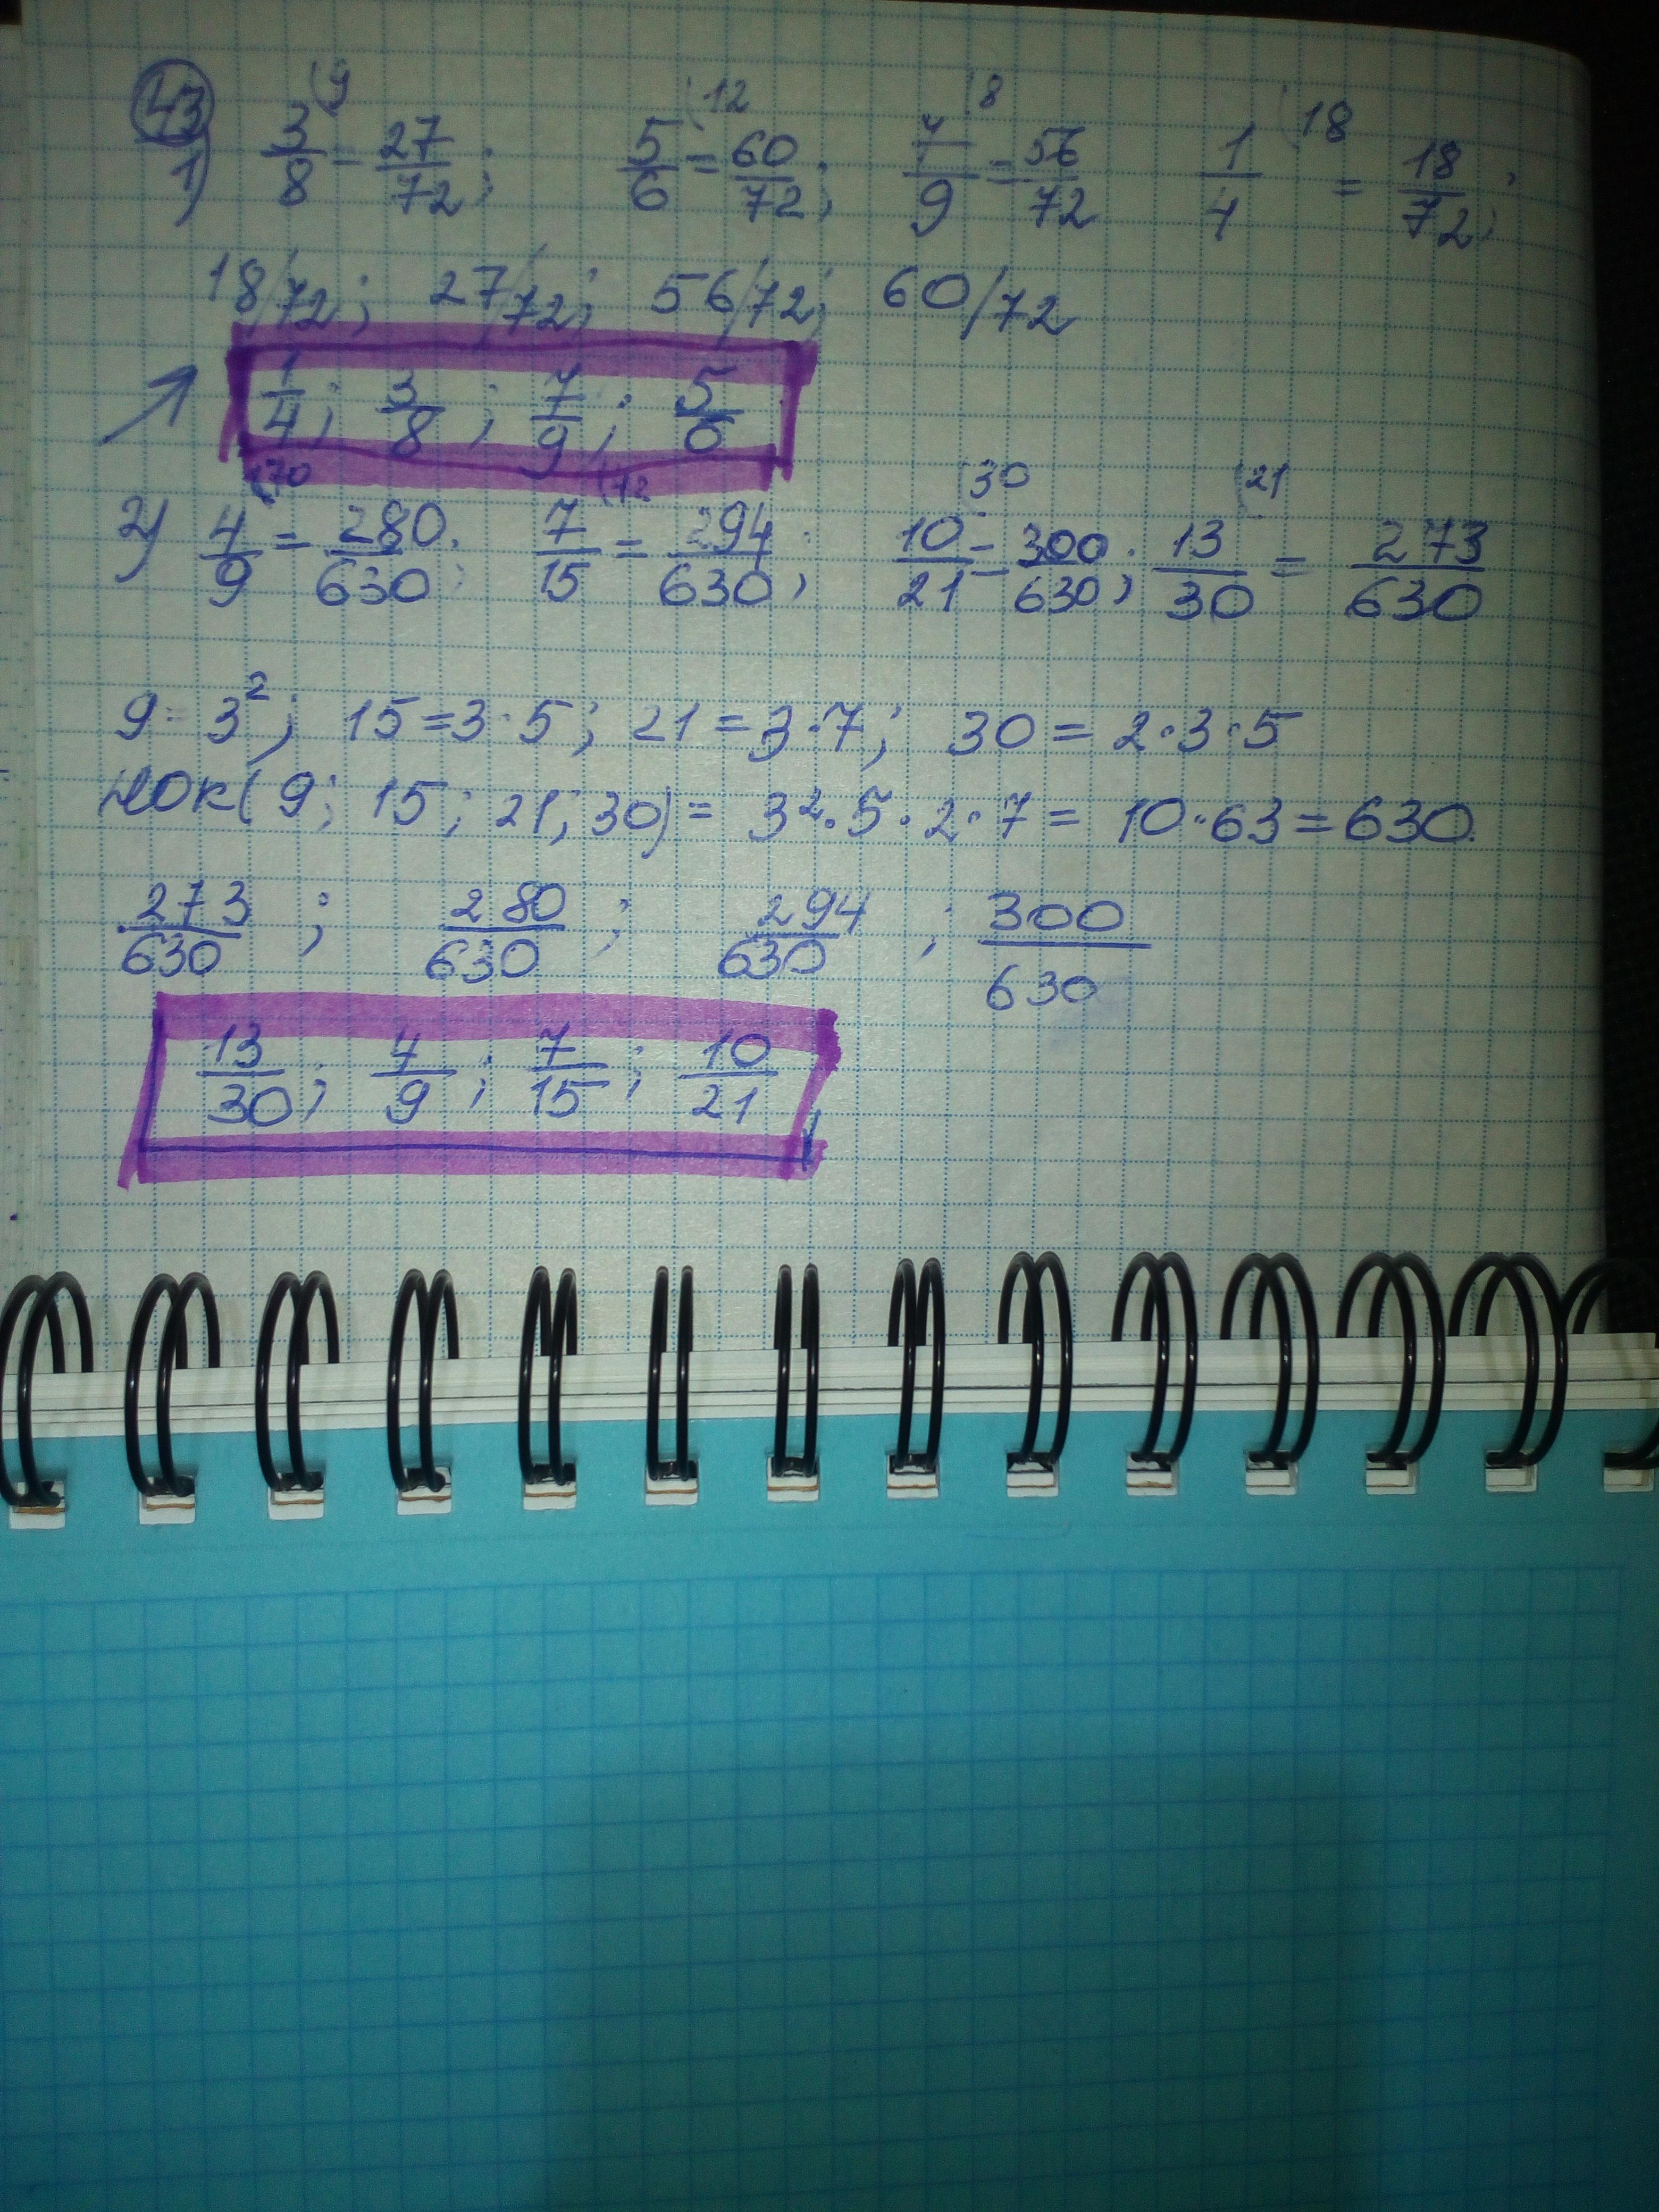 43
1) 3/8 (9 = 27/72; 5/6 (12 = 60/72; 7/9 (8 = 56/72 1/4 (18 = 18/72;
18/72; 27/72; 56/72; 60/72
↗ 1/4; 3/8; 7/9; 5/6
2) 4/9 (70 = 280/630; 7/15 = 294/630; 10/21 (30 = 300/630; 13/30 (21 = 273/630
9 = 3²; 15=3·5; 21=3·7; 30 = 2·3·5
НОК(9; 15; 21; 30) = 3²·5·2·7 = 10·63 = 630.
273/630; 280/630; 294/630; 300/630
13/30; 4/9; 7/15; 10/21